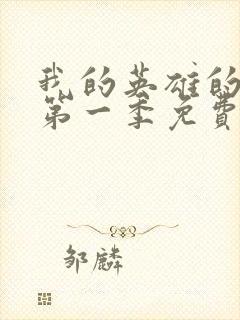 我的英雄的
第一季免费
邹麟